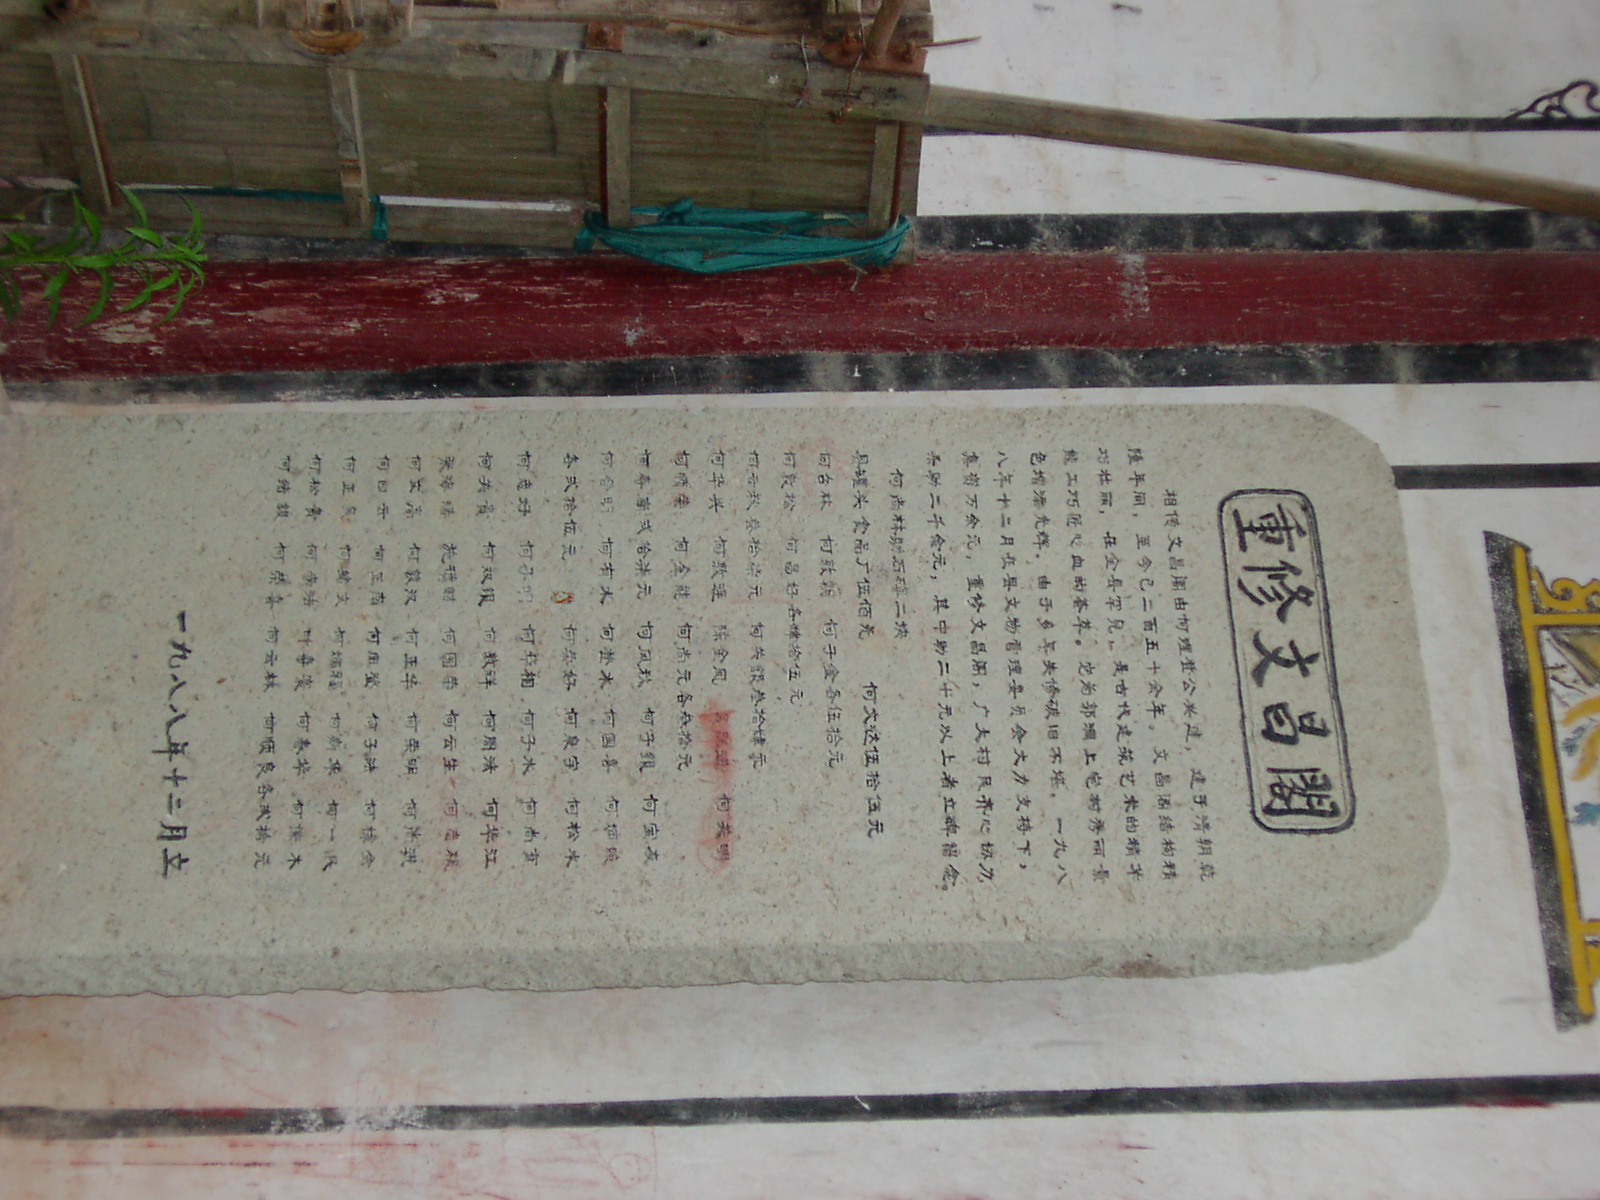 重修文昌閣
相传文昌阁由何理登公兴建，建于清朝乾
隆年间，至今已二百五十余年。文昌阁结构精
巧壮丽，在全县罕见。是古代建筑艺术的精华
能工巧匠心血的荟萃。它为郭洞上宅村秀丽景
色增添光辉。由于多年失修破旧不堪，一九八
八年十二月在县文物管理委员会大力支持下，
集资万余元，重修文昌阁，广大村民齐心协力，
乐助二千余元，其中助二十元以上者立碑留念。
何尚林助石碑二块
县罐头食品厂伍佰元 何文达伍拾伍元
何台林 何敦朝 何子金各伍拾元
何敦松 何昌好各肆拾伍元
何云秋叁拾柒元 何关银叁拾肆元
何华兴 何敦莲 陈金凤 何关明
何顺荣 何金能 何尚元各叁拾元
何寿宇弍拾柒元 何风秋 何子银 何宝夜
何有水 何登木 何国喜
各弍拾伍元 何荣好 何泉宇 何松水
何志好 何华相 何子水 何尚宽
何关贵 何双银 何敦祥 何周法 何华江
何国荣 何云生 何志根
何文高 何敦汉 何正华 何荣明 何尚洪
何日云 何正南 何凤登 何子法
何正民 何一民
何松贵 何春华
何荣喜 何云林 何顺良各弍拾元
一九八八年十二月立